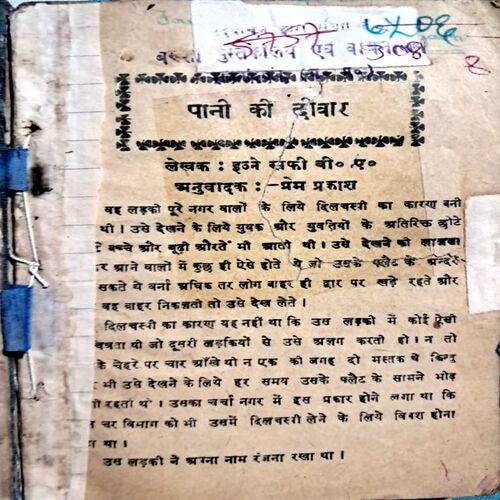 ५८०६
बस्ता पुस्तकालय एवं वाचनालय
८
पानी की दीवार
लेखक : इब्ने सफी बी० ए०
अनुवादक :—प्रेम प्रकाश
वह लड़की पूरे नगर वालों के लिये दिलचस्पी का कारण बनी
थी । उसे देखने के लिये युवक और युवतियों के अतिरिक्त छोटे
बच्चे और बूढ़ी औरतें भी आती थीं । उसे देखने की लालसा
र आने वालों में कुछ ही ऐसे होते थे जो उसके फ्लैट के अन्दर
सकते थे वर्ना अधिक तर लोग बाहर ही द्वार पर खड़े रहते और
वह बाहर निकलती तो उसे देख लेते ।
दिलचस्पी का कारण यह नहीं था कि उस लड़की में कोई ऐसी
थी जो दूसरी लड़कियों से उसे अलग करती हो । न तो
के चेहरे पर चार आँखें थीं न एक की जगह दो मस्तक थे किन्तु
भी उसे देखने के लिये हर समय उसके फ्लैट के सामने भीड़
रहती थी । उसका चर्चा नगर में इस प्रकार होने लगा था कि
चर विभाग को भी उसमें दिलचस्पी लेने के लिये विवश होना
था ।
उस लड़की ने अपना नाम रंजना रखा था ।